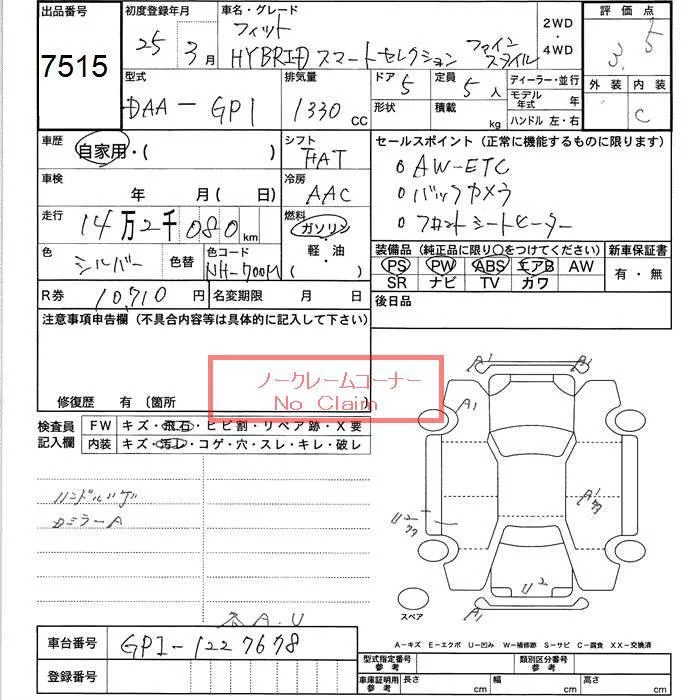 出品番号 初度登録年月 車名・グレード 評価点
7515 25 3月 フィット 2WD ・ 4WD 3.5
HYBRID スマートセレクション ファインスタイル
型式 排気量 ドア 5 定員 5人 ディーラー・並行 外装 内装
DAA-GP1 1330 CC 形状 積載 kg モデル年式 年 C
ハンドル 左・右
車歴 自家用・( ) シフト FAT セールスポイント(正常に機能するものに限ります)
車検 年 月( 日) 冷房 AAC o AW-ETC
o バックカメラ
走行 14万2千080km 燃料 ガソリン ・ 軽・油 ( ) o フロントシートヒーター
色 シルバー 色替 色コード NH-700M 装備品(純正品に限り○をつけてください) 新車保証書
PS PW ABS エアB AW 有・無
SR ナビ TV ガワ
R券 10,710円 名変期限 月 日 後日品
注意事項申告欄(不具合内容等は具体的に記入して下さい)
ノークレームコーナー
No Claim
修復歴 有〔箇所
検査員記入欄 FW キズ・飛石・ヒビ割・リペア跡・X要
内装 キズ・汚レ・コゲ・穴・スレ・キレ・破レ
ハンドルハゲ
Dミラー A
A1 A1
A1
A1
U2
U2
A1
各A.U
スペア
A-キズ E-エクボ U-凹み W-補修跡 S-サビ C-腐食 XX-交換済
車台番号 GP1-1227678
登録番号
型式指定番号 参考 類別区分番号 参考
車庫証明用 参考 長さ cm 幅 cm 高さ cm